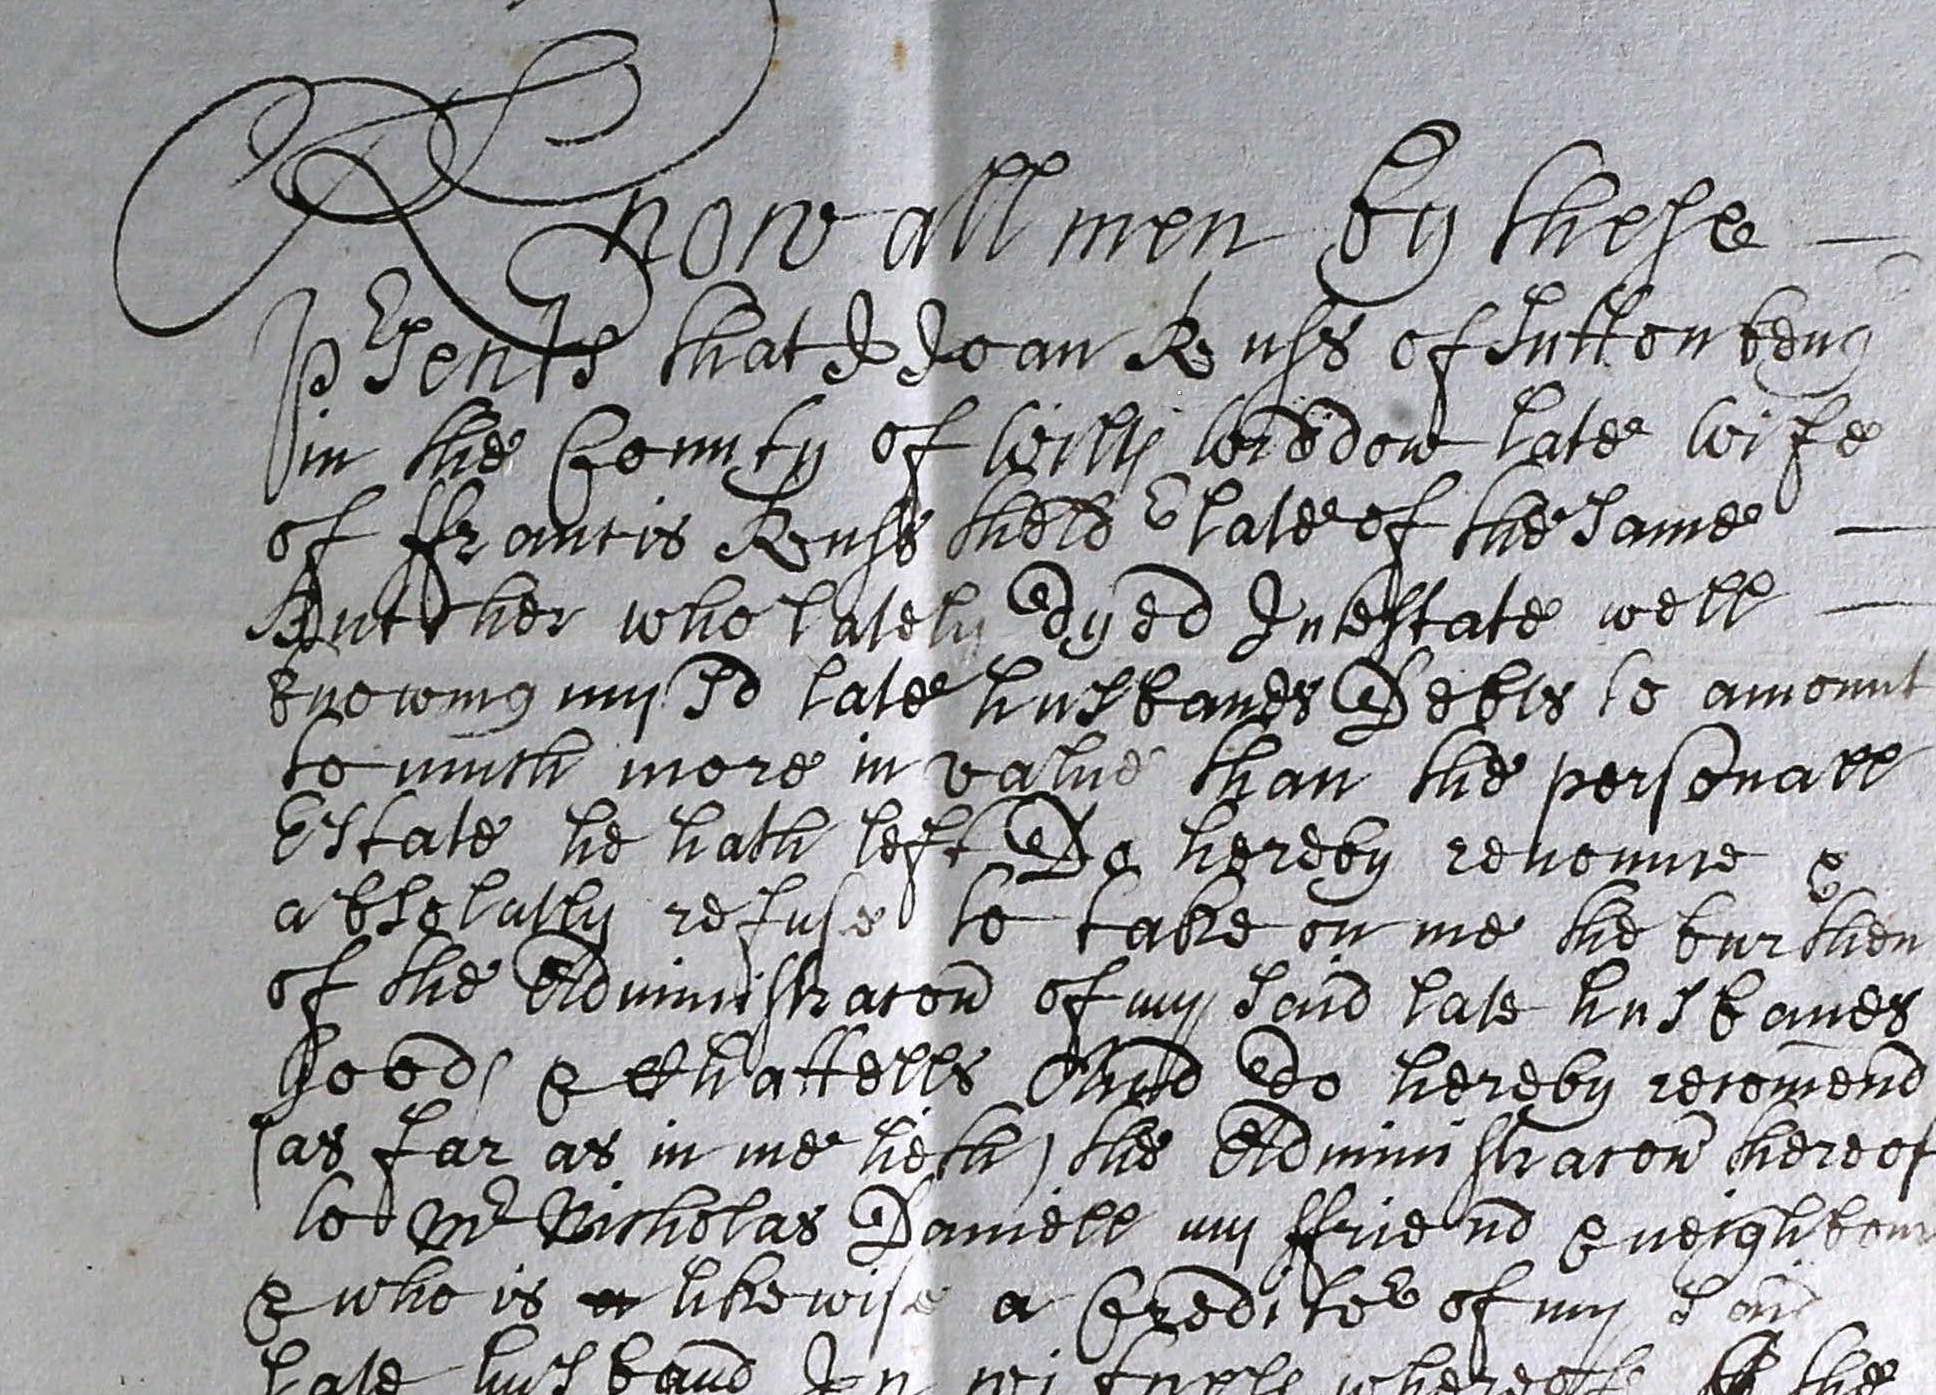 Know all men by these
p'sents that I Joan Russ of Sutton beng
in the County of Wilts Widdow late wife
of ffrancis Russ the eld'er late of the same
Butcher who lately dyed Intestate well
knowing my sd late husbands Debts to amount
to much more in value than the personall
Estate he hath left Do hereby renounce &
absolutly refuse to take on me the burthen
of the Administracon of my said late husbands
Goods & Chattells And do hereby recomend
(as far as in me lieth) the Administracon thereof
to Mr Nicholas Daniell my ffriend & neighbour
& who is likewise a Creditor of my said
late husband In witness whereof I the